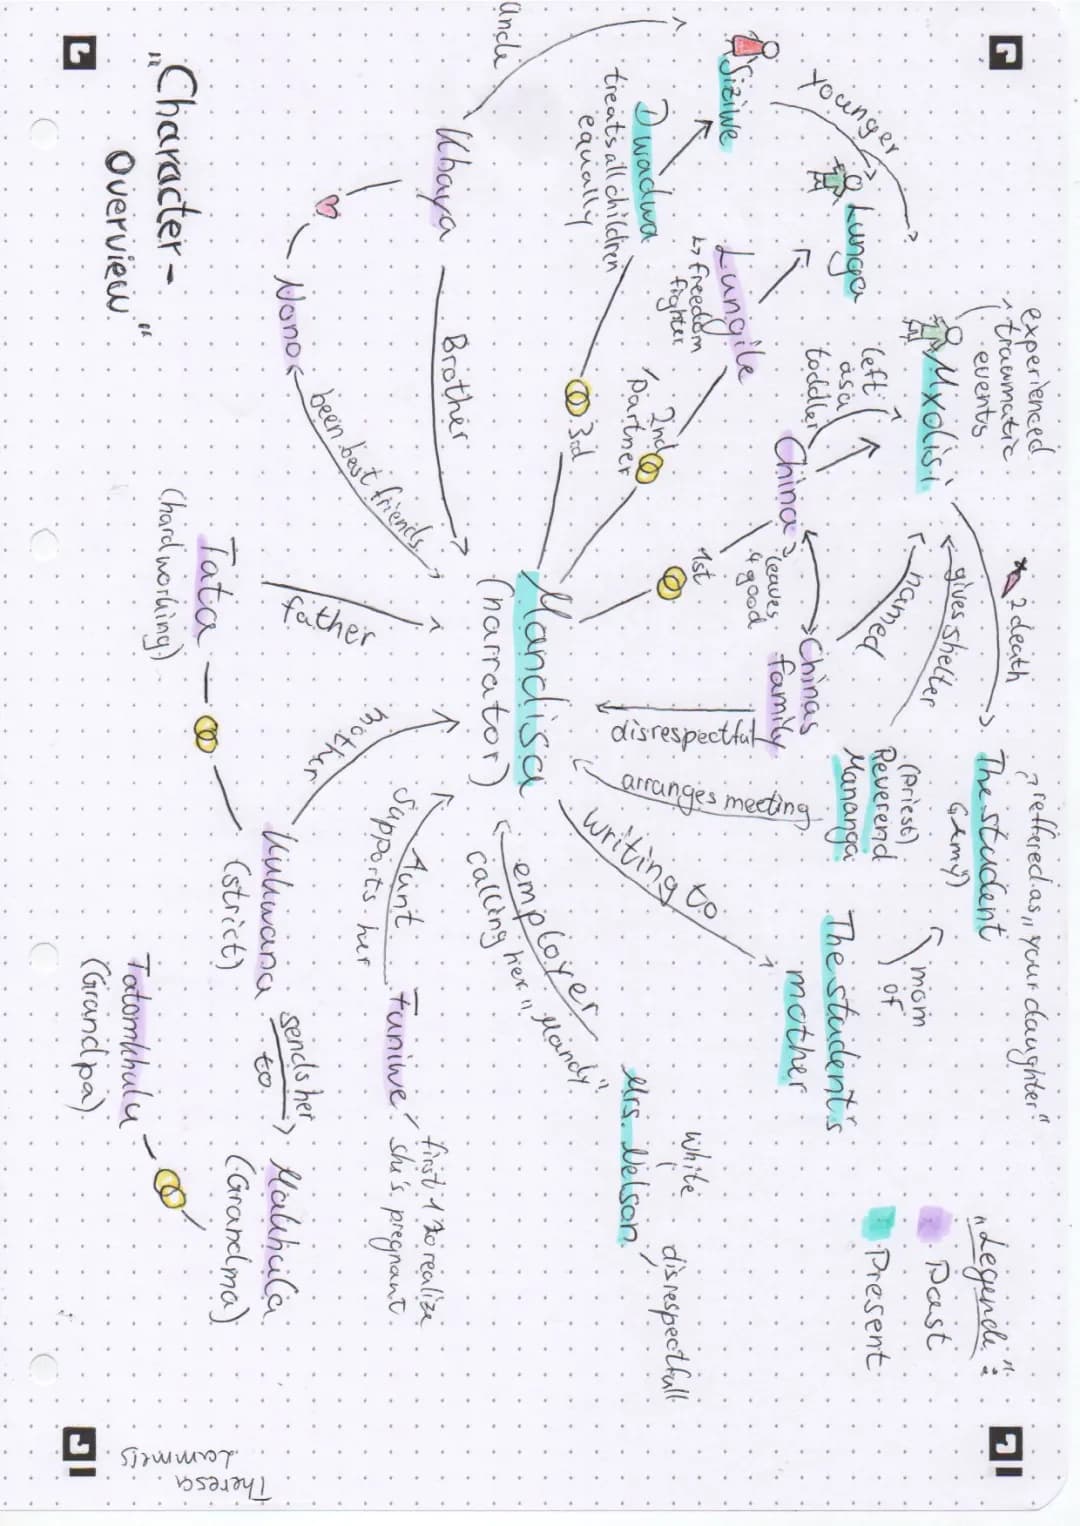 experienced
traumatic
events
"Legende":
Past
Present
reffered as "your daughter"
The student
(Amy)
2 death
mom
of
The student's
mother
Mxolisi
gives shelter
named
(priest)
Reverend
Mananga
Lunga
younger
left
as a
toddler
China
leaves
4 good
Chinas
family
disrespectful
arranges meeting
writing to
Siziwe
Lungile
↳ freedom
fighter
2nd
partner
1st
Dwadwa
treats all children
equally
3rd
White
Mrs. Nelson
disrespectfull
employer
calling her "Mandy"
Mandisa
(narrator)
uncle
Khaya
Brother
Nono
been best friends
father
Tata
(hardworking)
Mother
Kukwana
(strict)
Aunt
supports her
Funiwe
first 1 to realize
she's pregnant
sends her
to
Makhulu
(Grandma)
Tatomkhulu
(Grandpa)
"Character-
Overview"
Theresa
Lammers